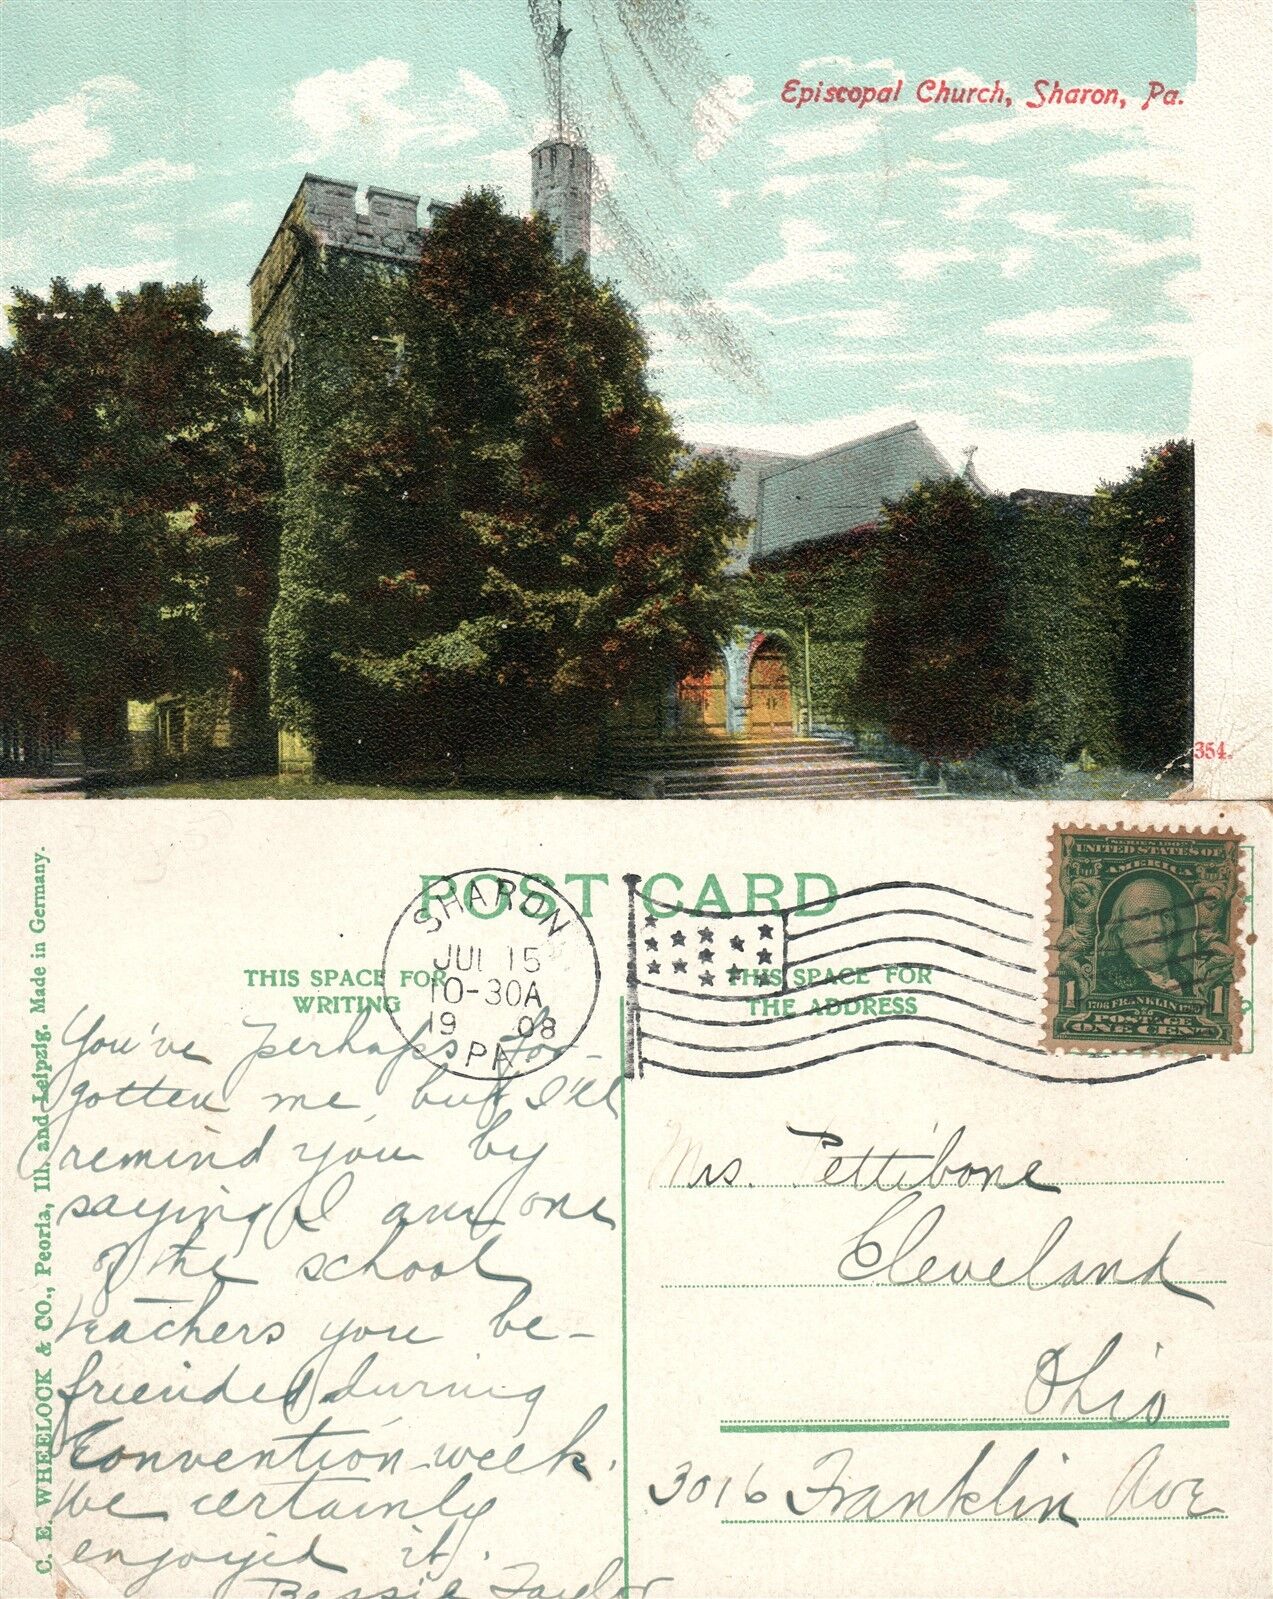 Episcopal Church, Sharon, Pa.
354.
C. E. WHEELOCK & CO., Peoria, Ill. and Leipzig. Made in Germany.
POST CARD
THIS SPACE FOR
WRITING
THIS SPACE FOR
THE ADDRESS
SHARON
JUL 15
10-30A
19 08
PA
SERIES 1902
UNITED STATES OF
AMERICA
1 1706 FRANKLIN 1790 1
POSTAGE
ONE CENT
You've perhaps for-
gotten me, but I'll
remind you by
saying I am one
of the school
teachers you be-
friended during
Convention week.
We certainly
enjoyed it.
Bessie Taylor
Mrs. Pettibone
Cleveland
Ohio
3016 Franklin Ave